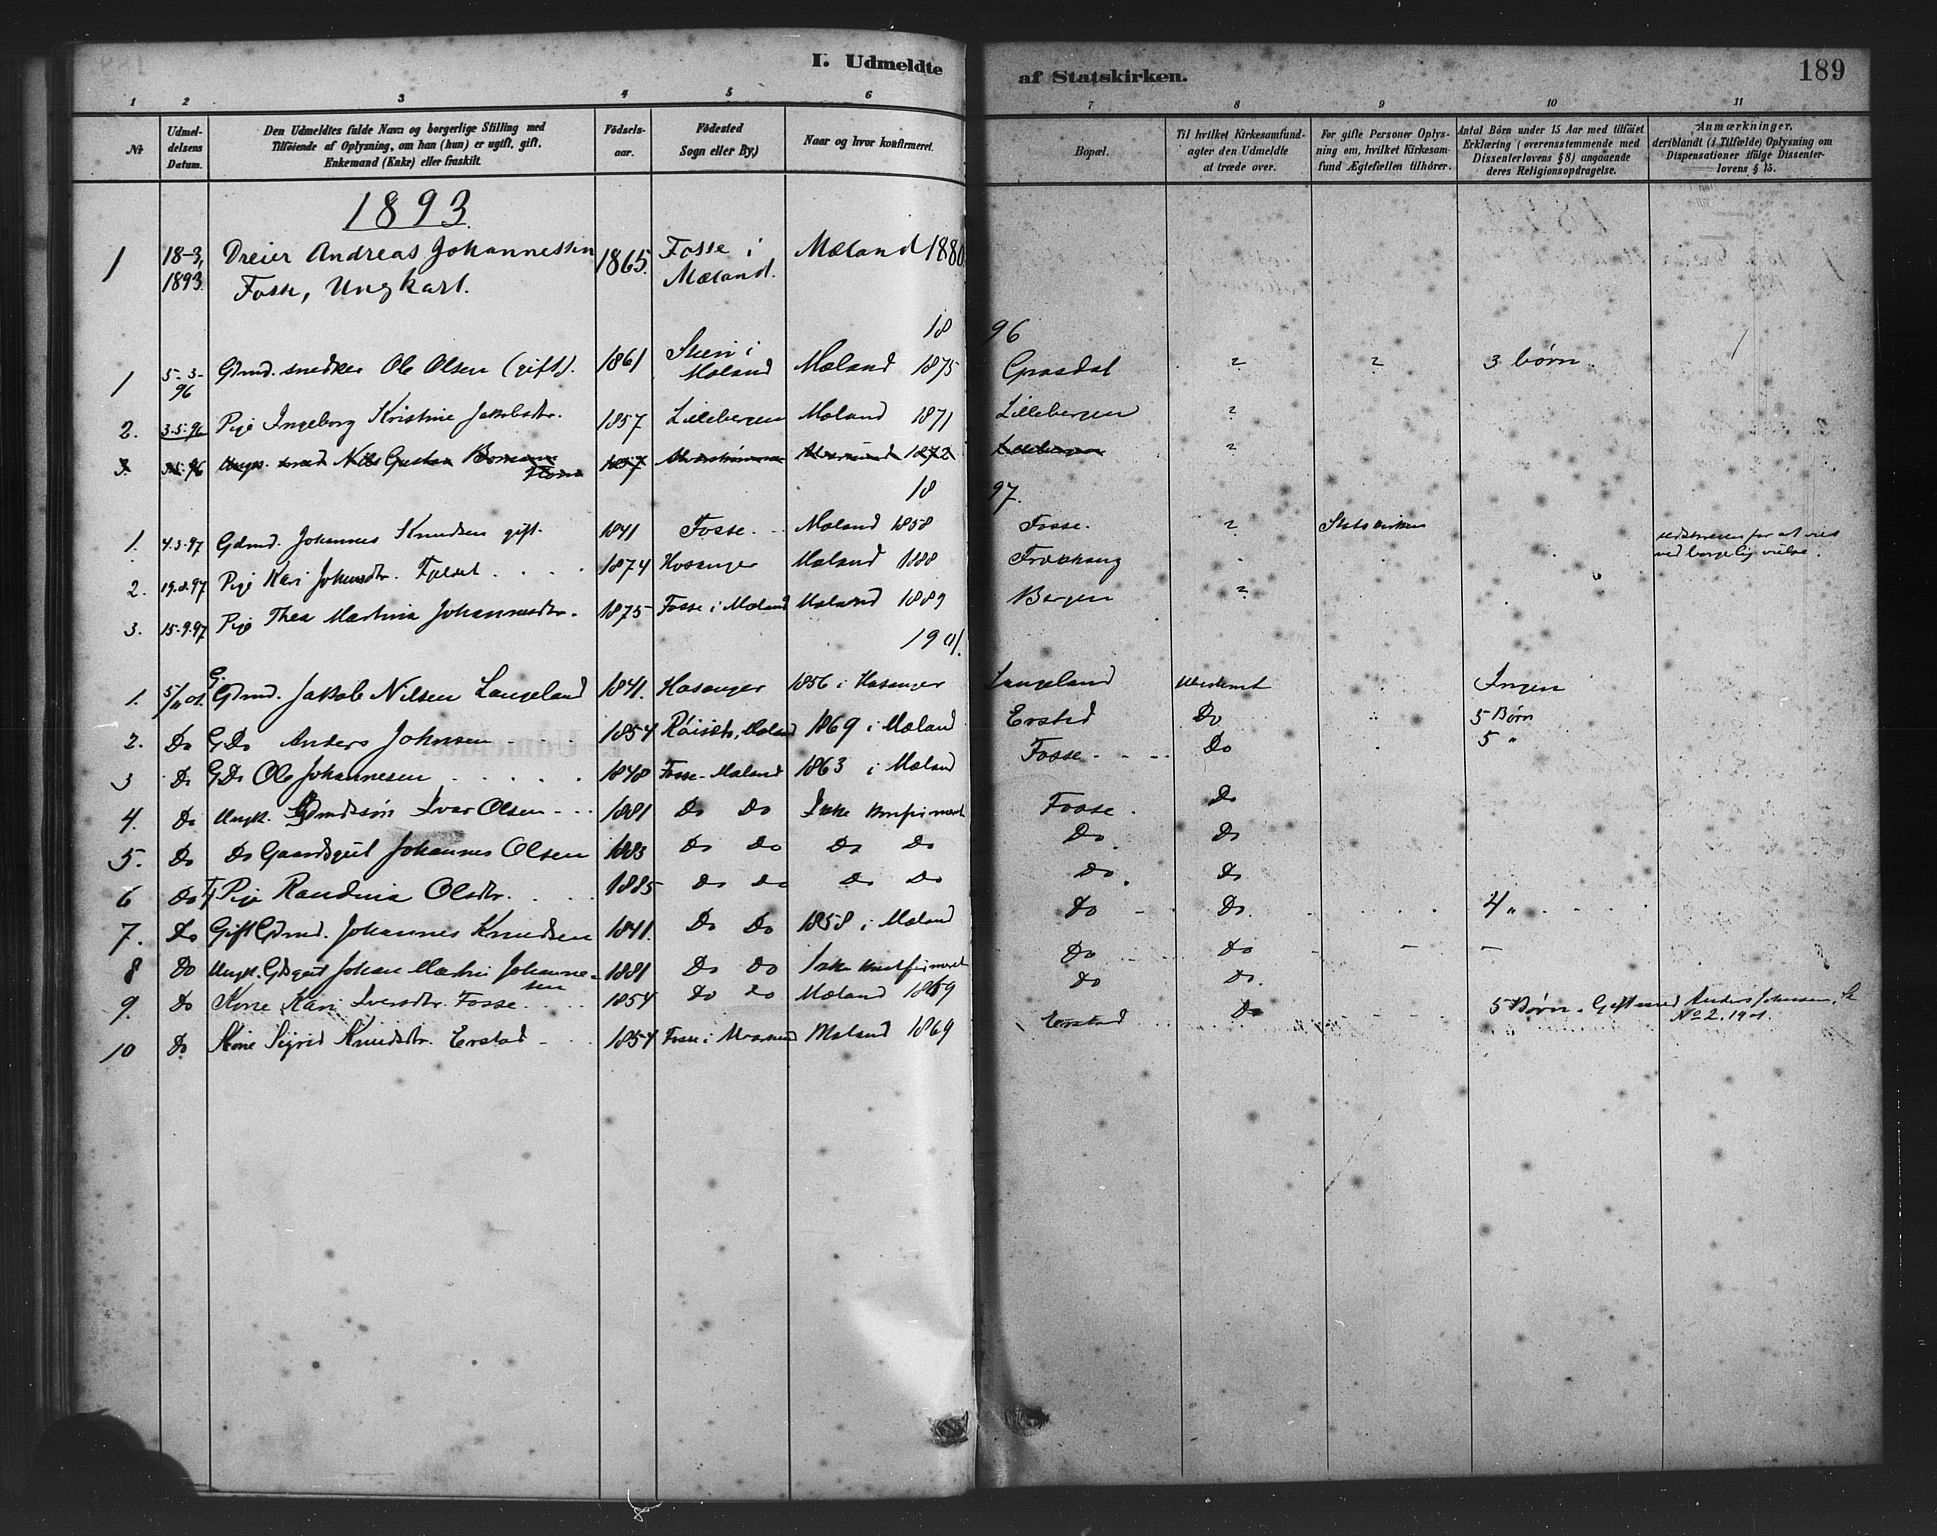 I. Udmeldte af Statskirken. 189
1 2 3 4 5 6 7 8 9 10 11
No
Udmel-
delsens
Datum.
Den Udmeldtes fulde Navn og borgerlige Stilling med
Tilføiende af Oplysning, om han (hun) er ugift, gift,
Enkemand (Enke) eller fraskilt.
Fødsels-
aar.
Fødested
Sogn eller By.)
Naar og hvor konfirmeret.
Bopæl.
Til hvilket Kirkesamfund-
agter den Udmeldte
at træde over.
For gifte Personer Oplys-
ning om, hvilket Kirkesam-
fund Ægtefællen tilhører.
Antal Børn under 15 Aar med tilføiet
Erklæring (overensstemmende med
Dissenterlovens § 8) angaaende
deres Religionsopdragelse.
Anmærkninger,
deriblandt (i Tilfælde) Oplysning om
Dispensationer ifølge Dissenter-
lovens § 15.
1893
1 18-3, 1893 Dreier Andreas Johannessen Fosse, Ungkarl. 1865. Fosse i Mæland. Mæland 1880
18 96
1 5-3-96 Gdmd. snedker Ole Olsen (gift). 1861 i Mæland Mæland 1875 ? ? 3 børn
2. 3.5.96 Pige Ingeborg Kristine Jakobsdtr. 1857 Lillebergen Mæland 1871 Lillebergen ?
3. 3.5.96 Ungk. Nils Gustav 1857 1872 Lillebergen ?
18 97.
1. 4.3.97 Gdmd. Johannes Knudsen gift. 1841 Fosse Mæland 1858 Fosse. ? Statskirken
2. 19.8.97 Pige Kari Johansdtr. 1874 Hosanger Mæland 1888 for at vies ved borgelig vielse.
3. 15.9.97 Pige Thea Martina Johannesdtr. 1875 Fosse i Mæland Mæland 1889 Bergen ?
1901.
1. 5/11 01. G. Gdmd. Jakob Nilsen Langeland 1841. Hosanger 1856 i Hosanger Langeland Ubestemt Ingen
2. Do G Do Anders Johnsen 1854 Mæland 1869 i Mæland Erstad Do 5 Børn
3 Do G Do Ole Johannesen 1848 Fosse Mæland 1863 i Mæland Fosse Do 5 "
4. Do Ungk. Gmdssøn Ivar Olsen 1881 Do Do Ikke konfirmeret Fosse. Do
5. Do Do Gaardsgut Johannes Olsen 1883 Do Do Do Do Do Do
6 Do Pige Randina Olsdtr. 1885 Do Do Do Do Do Do
7. Do Gift Gdmd. Johannes Knudsen 1841. Do Do 1858 i Mæland Do Do. 4 "
8 Do Ungk. Gdsgut Johan Martin Johanne-
sen 1881 Do Do Ikke konfirmeret Do Do - -
9. Do Kone Kari Iversdtr. Fosse 1854 Do Do Mæland 1869 Do Do.
10 Do Kone Sigrid Knudsdtr. Erstad 1854 Fosse i Mæland 1869 Erstad Do 5 Børn. Gift med Anders Johnsen,
No 2. 1901.